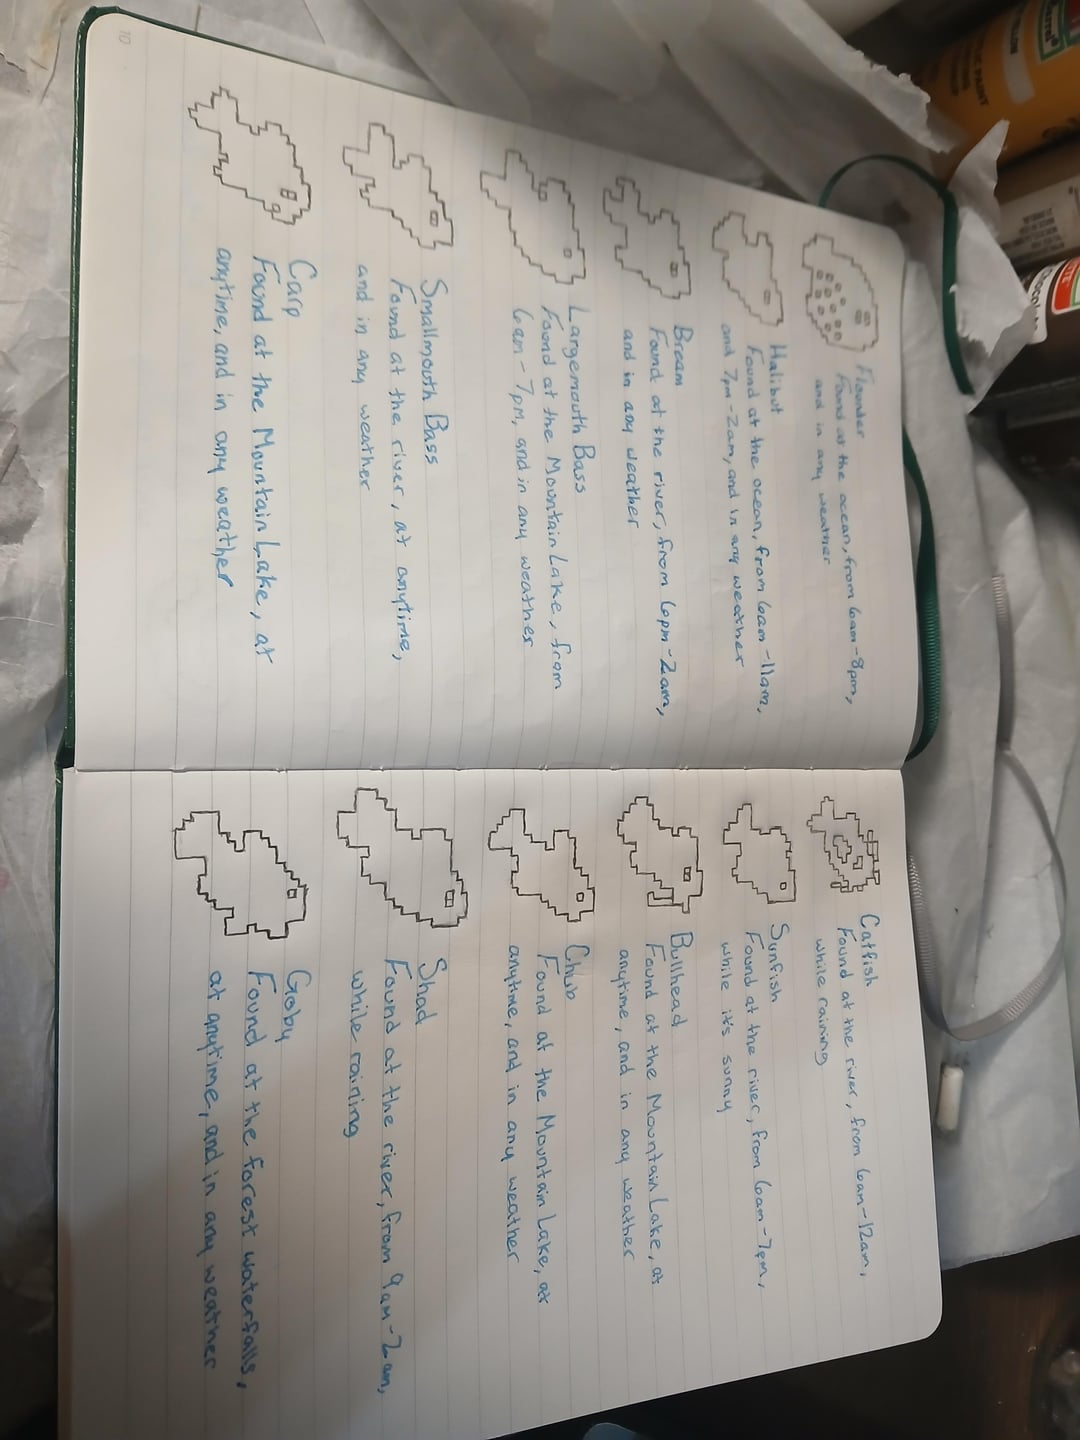 Flounder
Found at the ocean, from 6am-8pm,
and in any weather
Halibut
Found at the ocean, from 6am-11am,
and 7pm-2am, and in any weather
Bream
Found at the river, from 6pm-2am,
and in any weather
Largemouth Bass
Found at the Mountain Lake, from
6am-7pm, and in any weather
Smallmouth Bass
Found at the river, at anytime,
and in any weather
Carp
Found at the Mountain Lake, at
anytime, and in any weather
10
Catfish
Found at the river, from 6am-12am,
while raining
Sunfish
Found at the river, from 6am-7pm,
while it's sunny
Bullhead
Found at the Mountain Lake, at
anytime, and in any weather
Chub
Found at the Mountain Lake, at
anytime, and in any weather
Shad
Found at the river, from 9am-2am,
while raining
Goby
Found at the forest waterfalls,
at anytime, and in any weather
PAINT